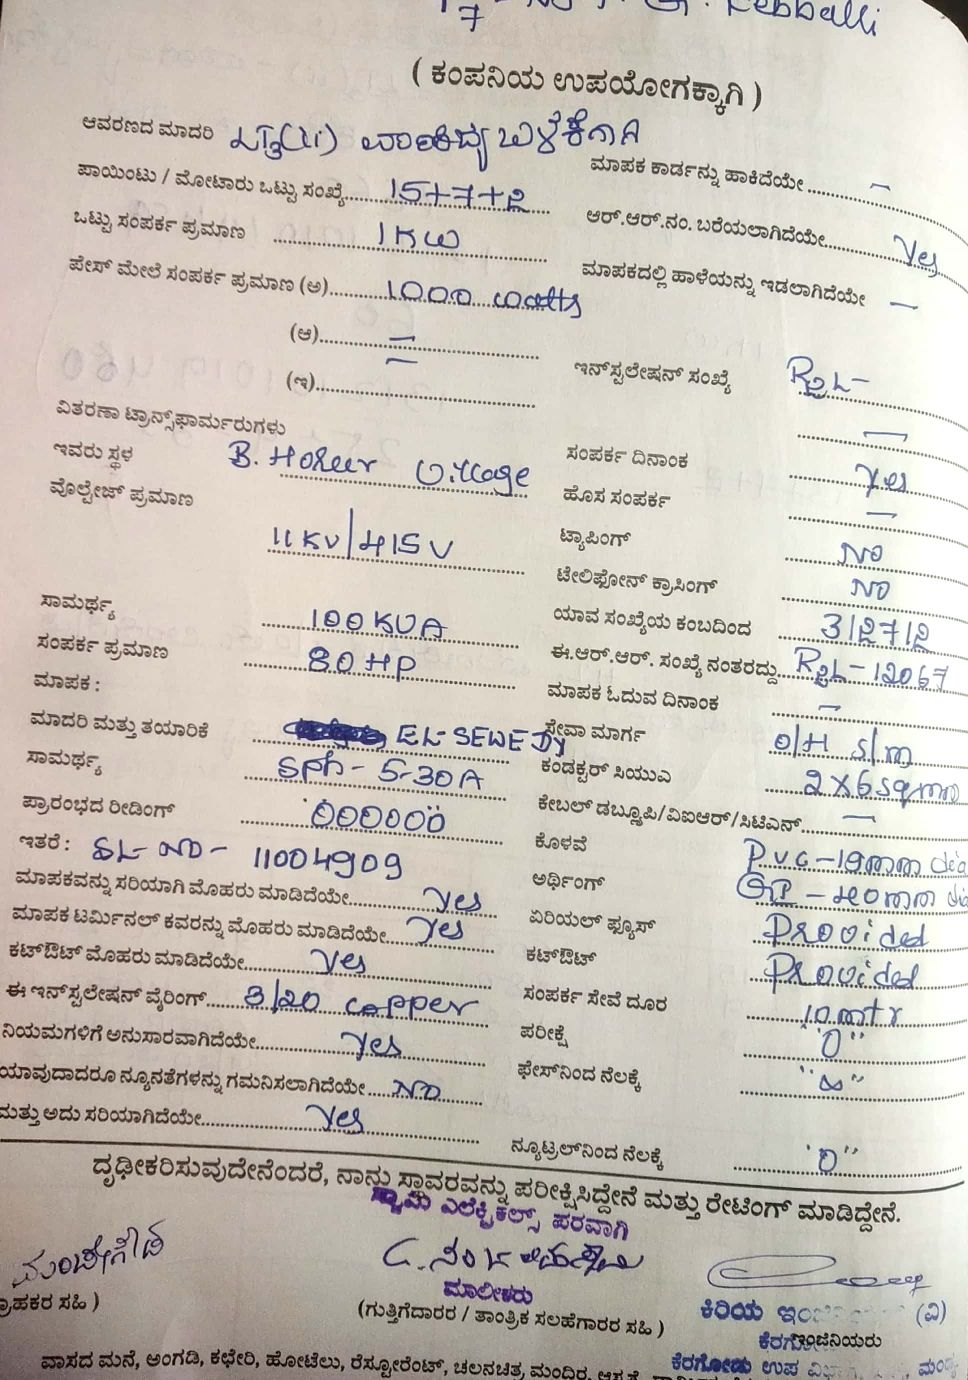 ( ಕಂಪನಿಯ ಉಪಯೋಗಕ್ಕಾಗಿ )
ಆವರಣದ ಮಾದರಿ
ಮಾಪಕ ಕಾರ್ಡನ್ನು ಹಾಕಿದೆಯೇ ..... –
ಪಾಯಿಂಟು / ಮೋಟಾರು ಒಟ್ಟು ಸಂಖ್ಯೆ..... 15+7+2
ಆರ್.ಆರ್.ನಂ. ಬರೆಯಲಾಗಿದೆಯೇ..... Yes
ಒಟ್ಟು ಸಂಪರ್ಕ ಪ್ರಮಾಣ ..... 1KW
ಮಾಪಕದಲ್ಲಿ ಹಾಳೆಯನ್ನು ಇಡಲಾಗಿದೆಯೇ –
ಪೇಸ್ ಮೇಲೆ ಸಂಪರ್ಕ ಪ್ರಮಾಣ (ಅ)..... 1000 watts
(ಆ)..... –
ಇನ್‌ಸ್ಟಲೇಷನ್ ಸಂಖ್ಯೆ
(ಇ)..... –
ವಿತರಣಾ ಟ್ರಾನ್ಸ್‌ಫಾರ್ಮರುಗಳು
ಇವರು ಸ್ಥಳ B. Hosur Village
ಸಂಪರ್ಕ ದಿನಾಂಕ –
ವೊಲ್ಟೇಜ್ ಪ್ರಮಾಣ
ಹೊಸ ಸಂಪರ್ಕ Yes
11KV/415V
ಟ್ಯಾಪಿಂಗ್ –
ಟೇಲಿಫೋನ್ ಕ್ರಾಸಿಂಗ್ NO
ಸಾಮರ್ಥ್ಯ 100KVA
ಯಾವ ಸಂಖ್ಯೆಯ ಕಂಬದಿಂದ 3/2/7/2
ಸಂಪರ್ಕ ಪ್ರಮಾಣ 80HP
ಈ.ಆರ್.ಆರ್. ಸಂಖ್ಯೆ ನಂತರದ್ದು
ಮಾಪಕ :
ಮಾಪಕ ಓದುವ ದಿನಾಂಕ –
ಮಾದರಿ ಮತ್ತು ತಯಾರಿಕೆ EL-SEWEDY
ಸೇವಾ ಮಾರ್ಗ O/H S/M
ಸಾಮರ್ಥ್ಯ SPh - 5-30A
ಕಂಡಕ್ಟರ್ ಸಿಯುಎ 2X6sqmm
ಪ್ರಾರಂಭದ ರೀಡಿಂಗ್ "000000"
ಕೇಬಲ್ ಡಬ್ಲ್ಯೂಪಿ/ವಿಐಆರ್/ಸಿಟಿಎಸ್..... –
ಇತರೆ : SL-NO- 11004909
ಕೊಳವೆ P.V.C-19mm dia
ಮಾಪಕವನ್ನು ಸರಿಯಾಗಿ ಮೊಹರು ಮಾಡಿದೆಯೇ..... Yes
ಅರ್ಥಿಂಗ್ GI - 40mm di
ಮಾಪಕ ಟರ್ಮಿನಲ್ ಕವರನ್ನು ಮೊಹರು ಮಾಡಿದೆಯೇ..... Yes
ಏರಿಯಲ್ ಫ್ಯೂಸ್ Provided
ಕಟ್‌ಔಟ್ ಮೊಹರು ಮಾಡಿದೆಯೇ..... Yes
ಕಟ್‌ಔಟ್ Provided
ಈ ಇನ್‌ಸ್ಟಲೇಷನ್ ವೈರಿಂಗ್..... 3/20 copper
ಸಂಪರ್ಕ ಸೇವೆ ದೂರ 10mtr
ನಿಯಮಗಳಿಗೆ ಅನುಸಾರವಾಗಿದೆಯೇ..... Yes
ಪರೀಕ್ಷೆ "0"
ಯಾವುದಾದರೂ ನ್ಯೂನತೆಗಳನ್ನು ಗಮನಿಸಲಾಗಿದೆಯೇ..... NO
ಫೇಸ್‌ನಿಂದ ನೆಲಕ್ಕೆ "∞"
ಮತ್ತು ಅದು ಸರಿಯಾಗಿದೆಯೇ..... Yes
ನ್ಯೂಟ್ರಲ್‌ನಿಂದ ನೆಲಕ್ಕೆ "0"
ದೃಢೀಕರಿಸುವುದೇನೆಂದರೆ, ನಾನು ಸ್ಥಾವರವನ್ನು ಪರೀಕ್ಷಿಸಿದ್ದೇನೆ ಮತ್ತು ರೇಟಿಂಗ್ ಮಾಡಿದ್ದೇನೆ.
ಸ್ವಾಮಿ ಎಲೆಕ್ಟ್ರಿಕಲ್ಸ್ ಪರವಾಗಿ
ಮಾಲೀಕರು
ಕಿರಿಯ (ವಿ)
ಗ್ರಾಹಕರ ಸಹಿ )
(ಗುತ್ತಿಗೆದಾರರ / ತಾಂತ್ರಿಕ ಸಲಹೆಗಾರರ ಸಹಿ )
ಇಂಜಿನಿಯರು
ಕೆರಗೋಡು ಉಪ
ವಾಸದ ಮನೆ, ಅಂಗಡಿ, ಕಛೇರಿ, ಹೋಟೆಲು, ರೆಸ್ಟೋರೆಂಟ್, ಚಲನಚಿತ್ರ ಮಂದಿರ,